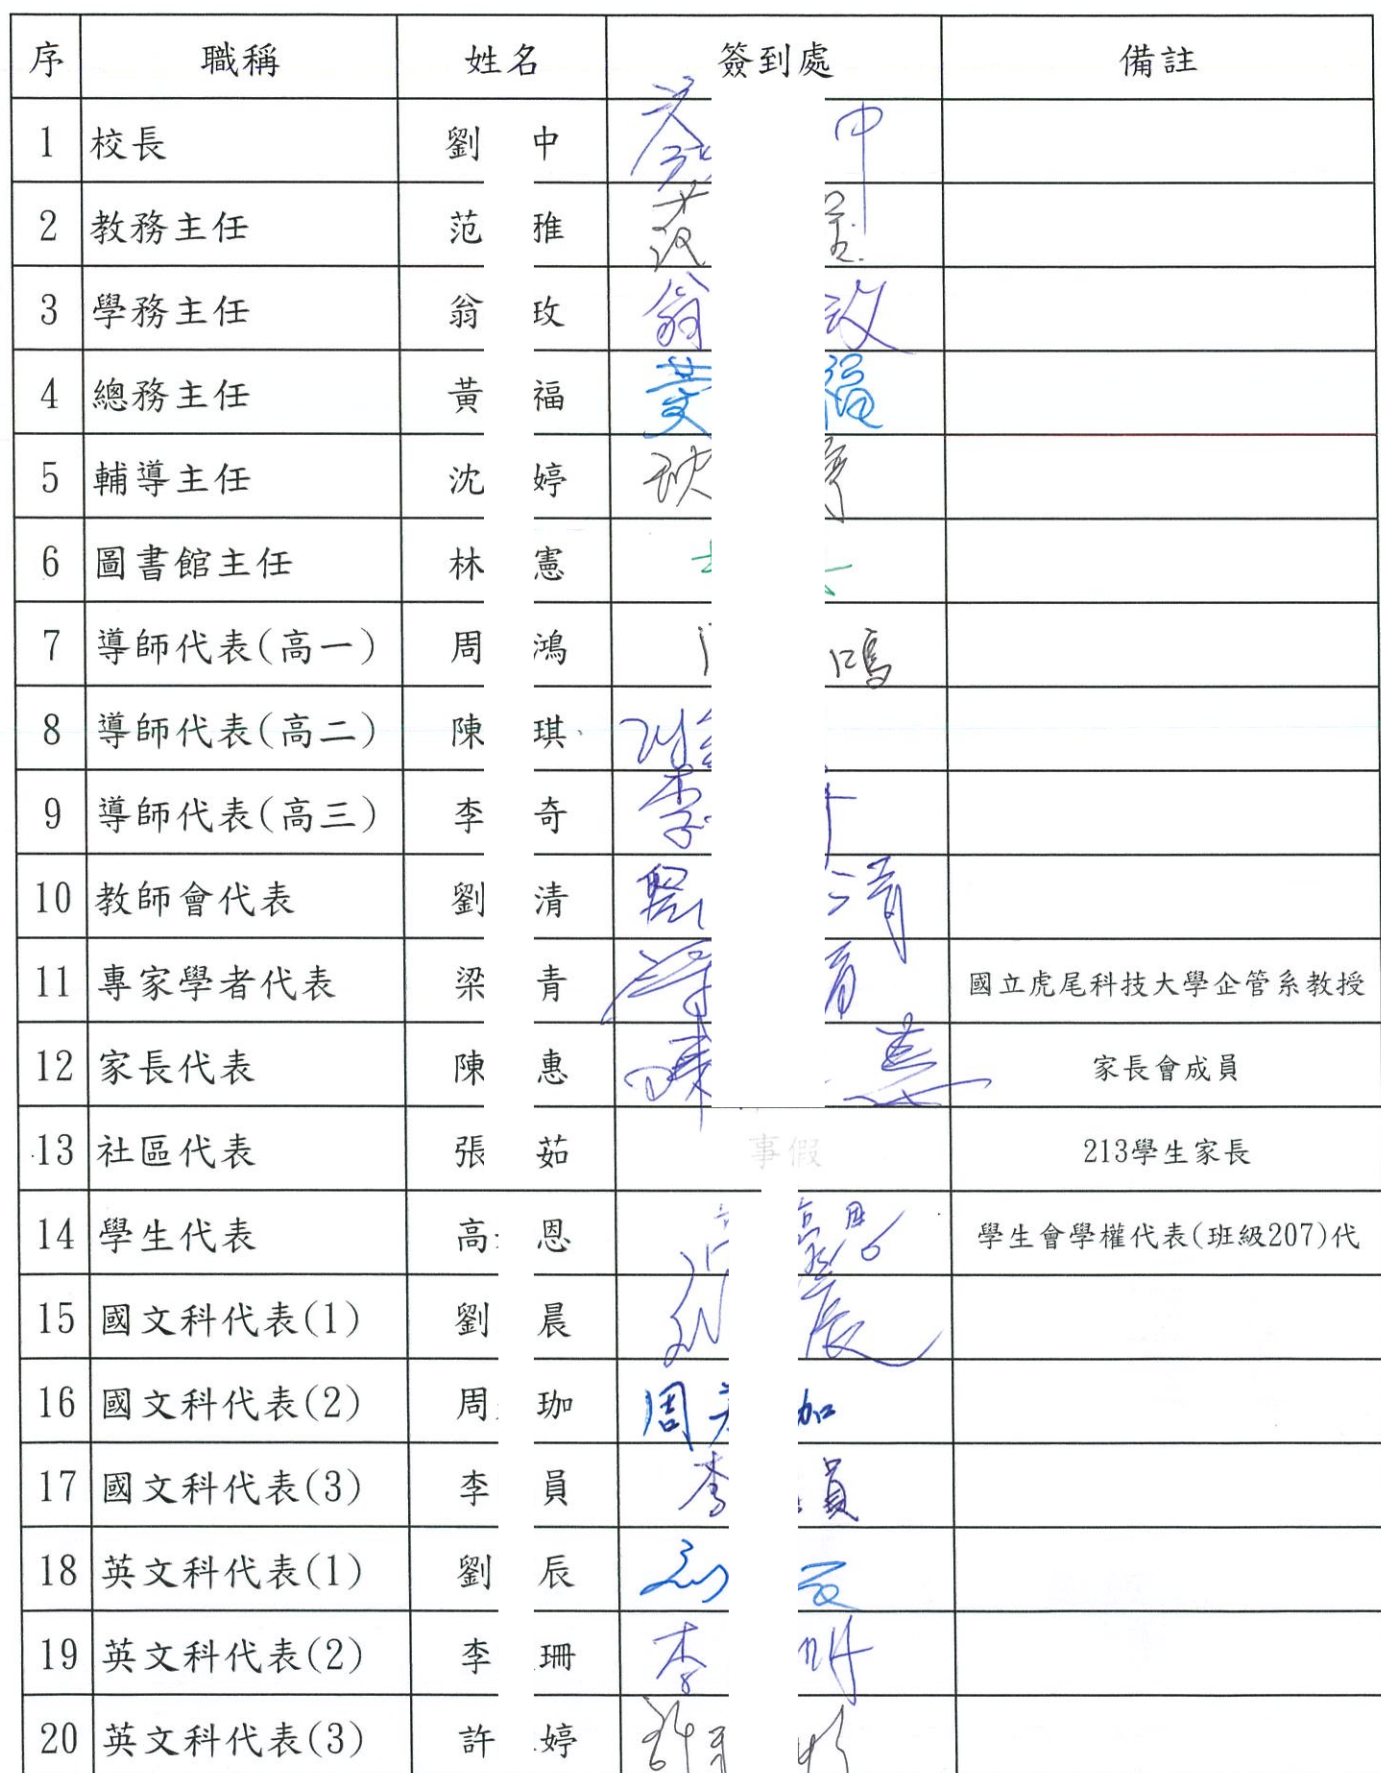 序 職稱 姓名 簽到處 備註
1 校長 劉 中 中
2 教務主任 范 雅
3 學務主任 翁 玫 翁 玫
4 總務主任 黃 福 黃 福
5 輔導主任 沈 婷
6 圖書館主任 林 憲
7 導師代表(高一) 周 鴻 鴻
8 導師代表(高二) 陳 琪
9 導師代表(高三) 李 奇 李
10 教師會代表 劉 清 劉 清
11 專家學者代表 梁 青 青 國立虎尾科技大學企管系教授
12 家長代表 陳 惠 陳 惠 家長會成員
13 社區代表 張 茹 事假 213學生家長
14 學生代表 高 恩 恩 學生會學權代表(班級207)代
15 國文科代表(1) 劉 晨 晨
16 國文科代表(2) 周 珈 周 珈
17 國文科代表(3) 李 員 李 員
18 英文科代表(1) 劉 辰
19 英文科代表(2) 李 珊 李
20 英文科代表(3) 許 婷 許